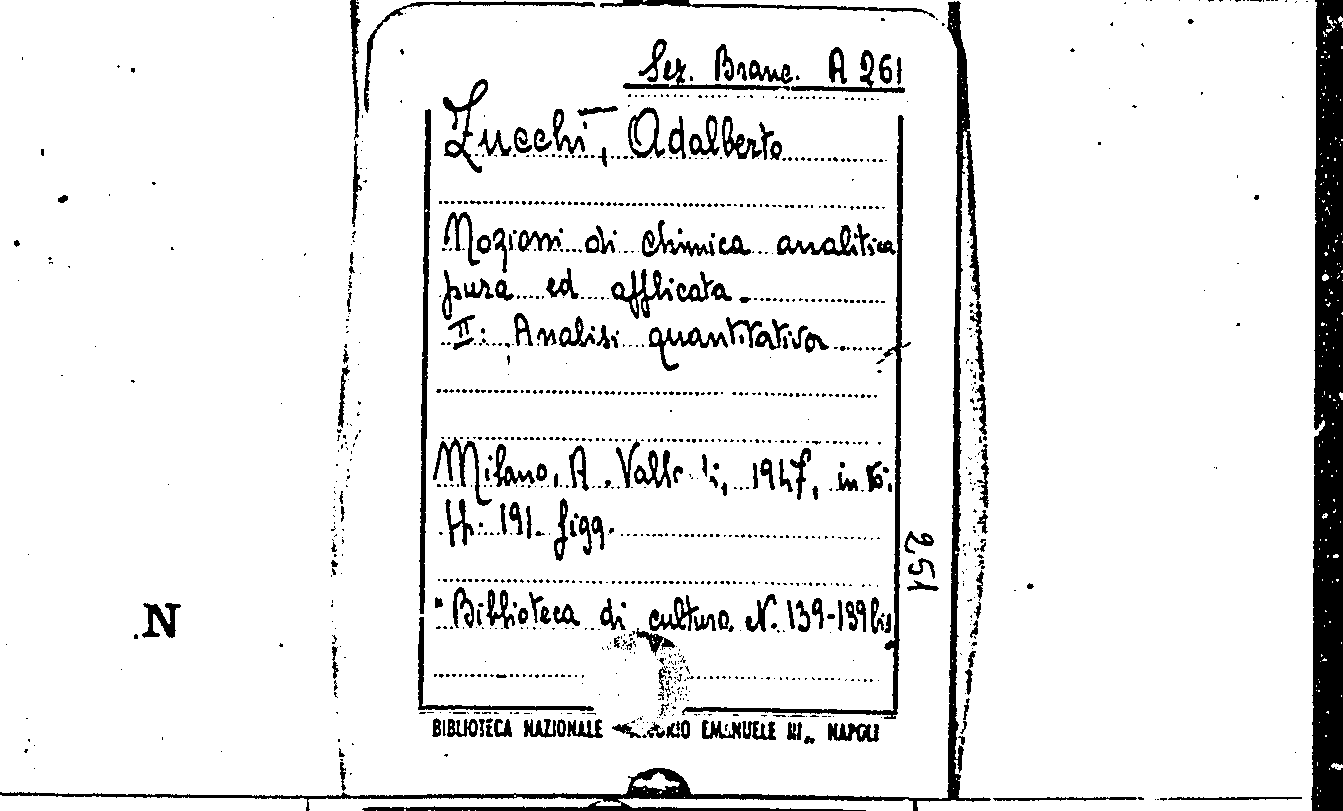 Sez. Branc. A 261
Zucchi, Adalberto
Nozioni di chimica analitica
pura ed applicata.
II: Analisi quantitativa.
Milano, A. 1947, in 16:
pp. 191. figg.
251
"Biblioteca di cultura, N. 139-139 bis
N
BIBLIOTECA NAZIONALE EMANUELE III„ NAPOLI